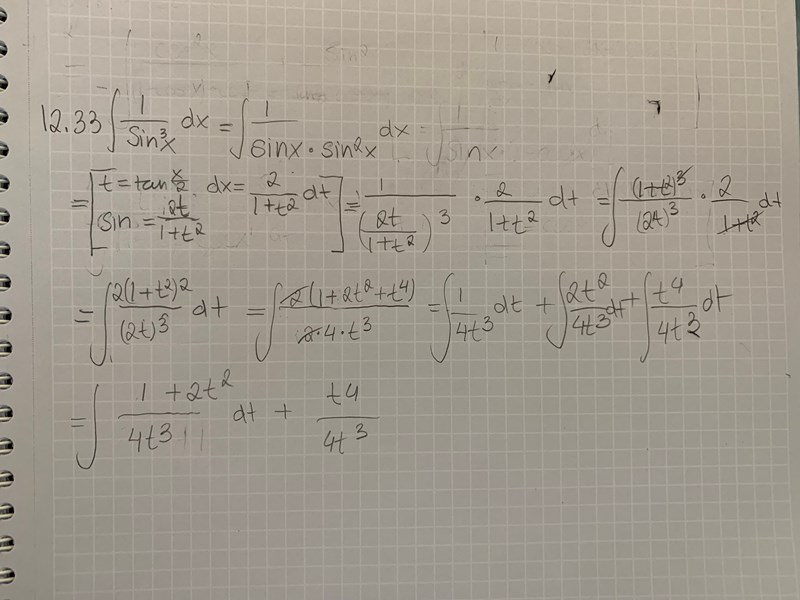 12.33 ∫ 1/sin³x dx = ∫ 1/(sinx · sin²x) dx = ∫ 1/sinx
= [t = tan x/2 dx = 2/(1+t²) dt sin = 2t/(1+t²)] = 1/(2t/(1+t²))³ · 2/(1+t²) dt = ∫ (1+t²)³/(2t)³ · 2/(1+t²) dt
= ∫ 2(1+t²)²/(2t)³ dt = ∫ 2(1+2t²+t⁴)/(2·4·t³) = ∫ 1/4t³ dt + ∫ 2t²/4t³ dt + ∫ t⁴/4t³ dt
= ∫ (1+2t²)/4t³ dt + t⁴/4t³